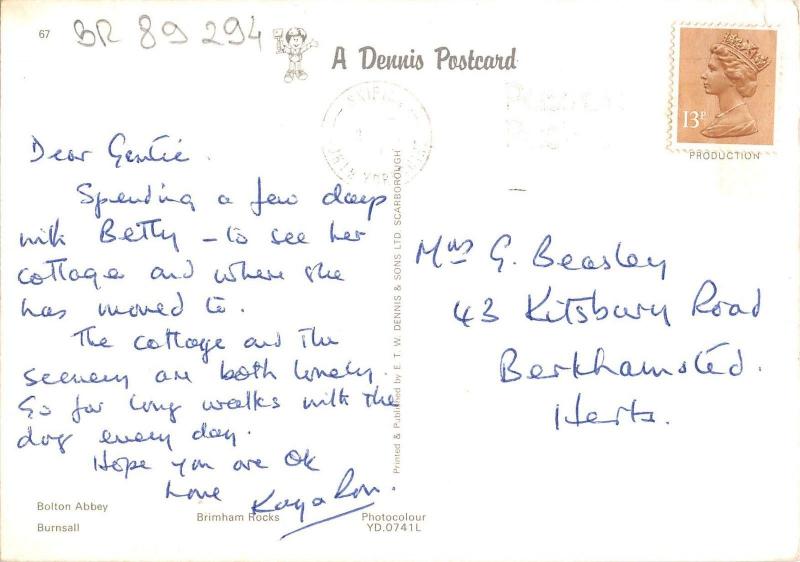 67
BR 89 294
A Dennis Postcard
13P
PRODUCTION
Dear Gertie.
Spending a few days
with Betty - to see her
cottage and where she
has moved to.
The cottage and the
scenery are both lovely.
Go for long walks with the
dog every day.
Hope you are OK
Love Kay & Ron.
Printed & Published by E. T. W. DENNIS & SONS LTD. SCARBOROUGH
Mrs G. Beasley
43 Kitsbury Road
Berkhamsted.
Herts.
Bolton Abbey
Burnsall
Brimham Rocks
Photocolour
YD.0741L